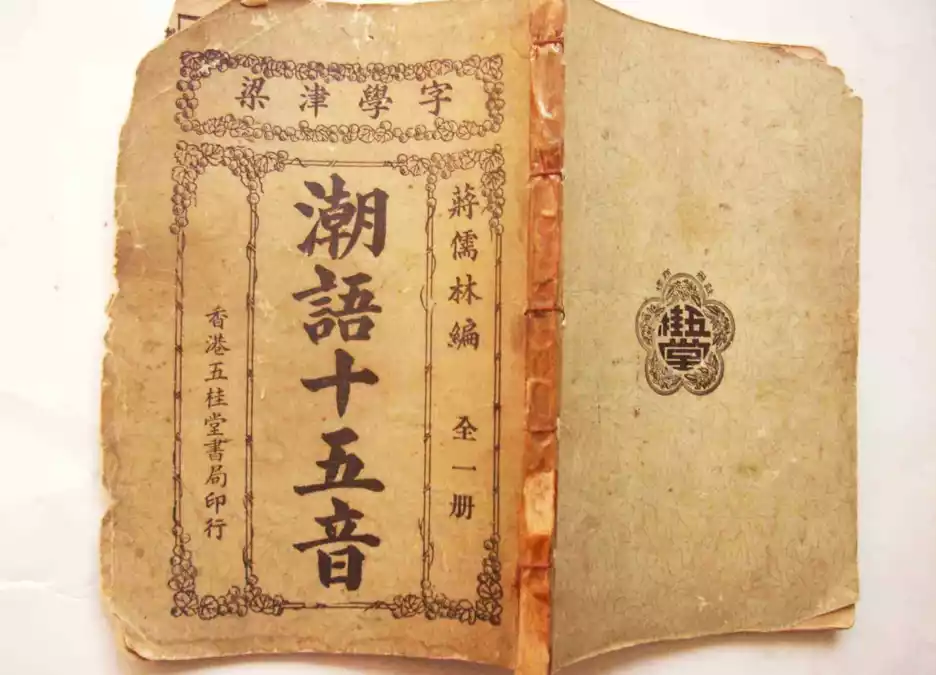 字學津梁
蔣儒林編 全一册
潮語十五音
香港五桂堂書局印行
五桂堂